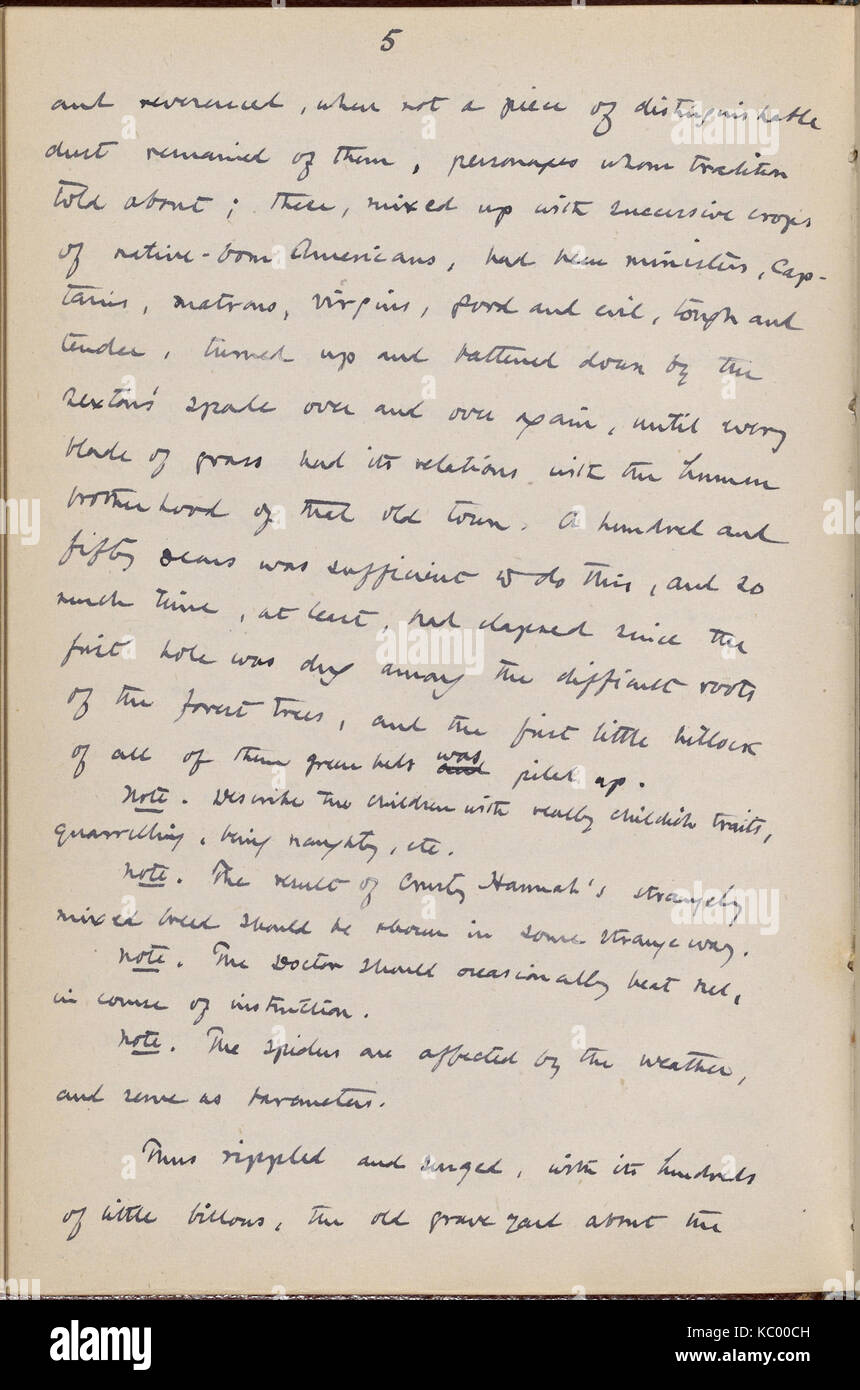 5
and reverenced, when not a piece of distinguishable
dust remained of them, personages whom tradition
told about; these, mixed up with successive crops
of native-born Americans, had been ministers, Cap-
tains, matrons, virgins, good and evil, tough and
tender, turned up and battened down by the
sexton's spade over and over again, until every
blade of grass had its relations with the human
brotherhood of that old town. A hundred and
fifty years was sufficient to do this, and so
much time, at least, had elapsed since the
first hole was dug among the difficult roots
of the forest trees, and the first little hillock
of all of them green beds was and piled up.
Note. Describe the children with really childish traits,
quarrelling, being naughty, etc.
Note. The result of Crusty Hannah's strangely
mixed breed should be shown in some strange way.
Note. The Doctor should occasionally beat Ned,
in course of instruction.
Note. The spiders are affected by the weather,
and serve as barometers.
Thus rippled and surged, with its hundreds
of little billows, the old grave yard about the
alamy
a
alamy stock photo
Image ID: KC00CH
www.alamy.com